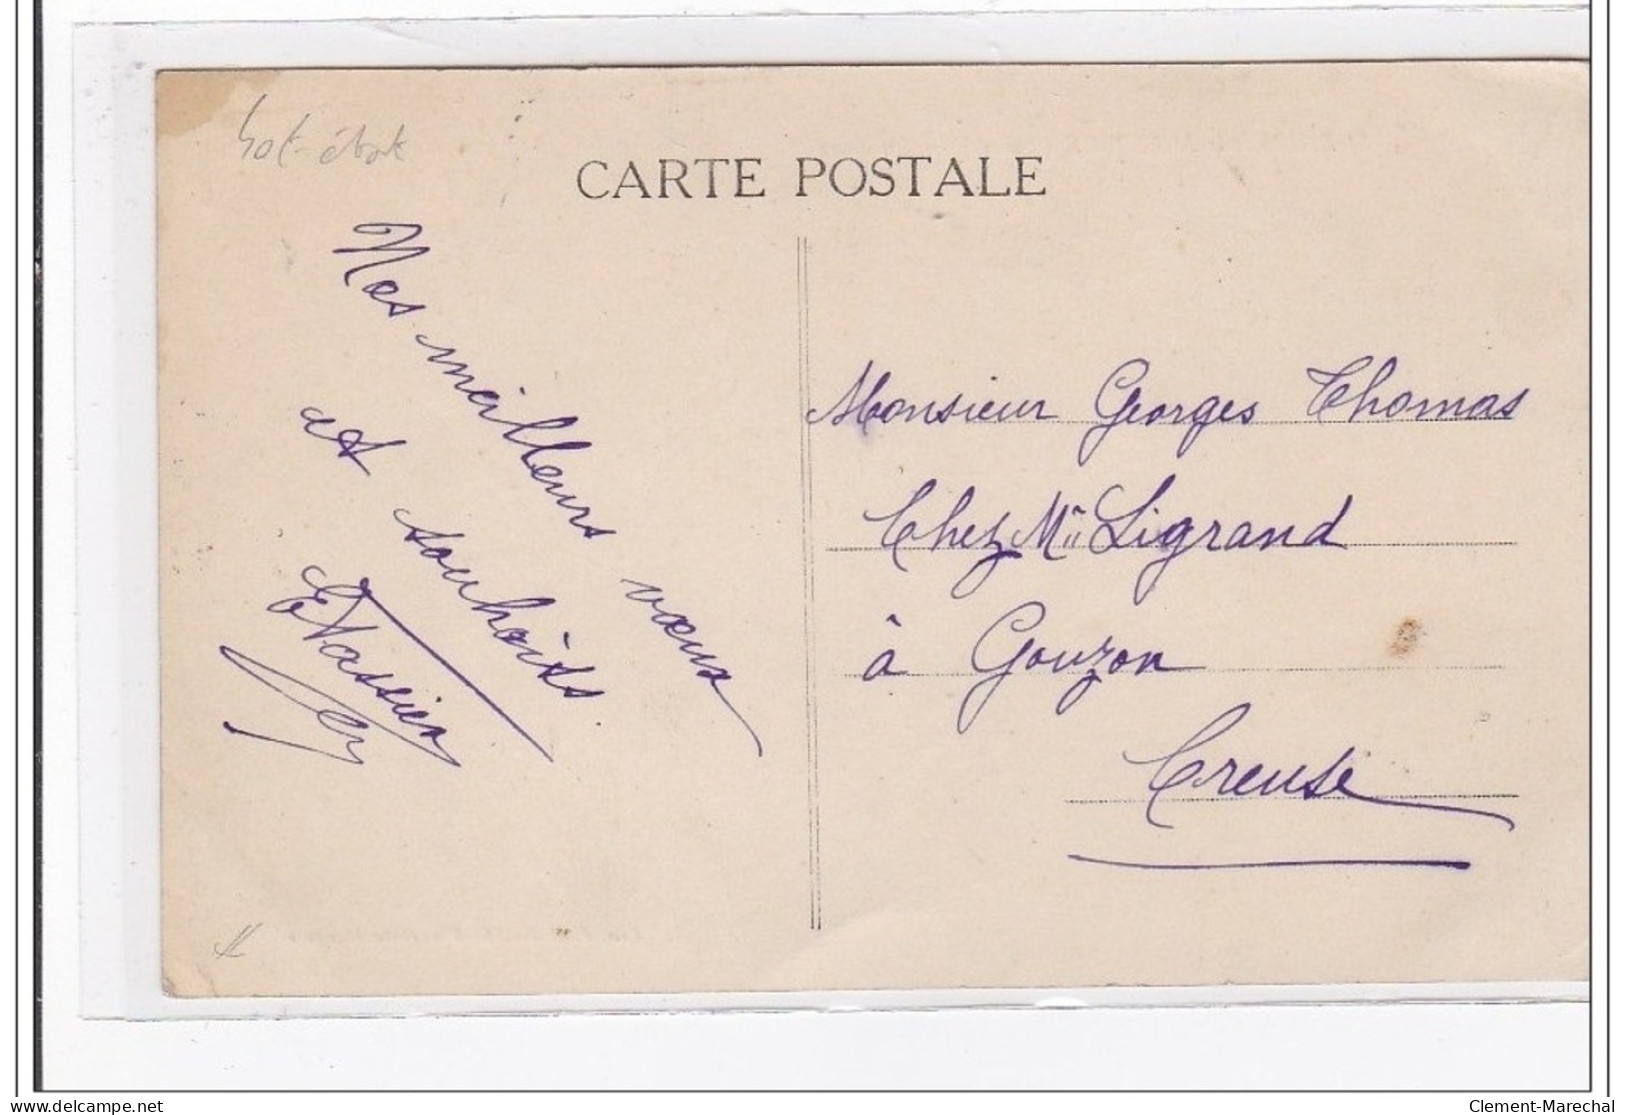 CARTE POSTALE
Nos meilleurs vœux
et souhaits.
Monsieur Georges Thomas
Chez Mr Ligrand
à Gouzon
Creuse
delcampe.net
Clement-Marechal